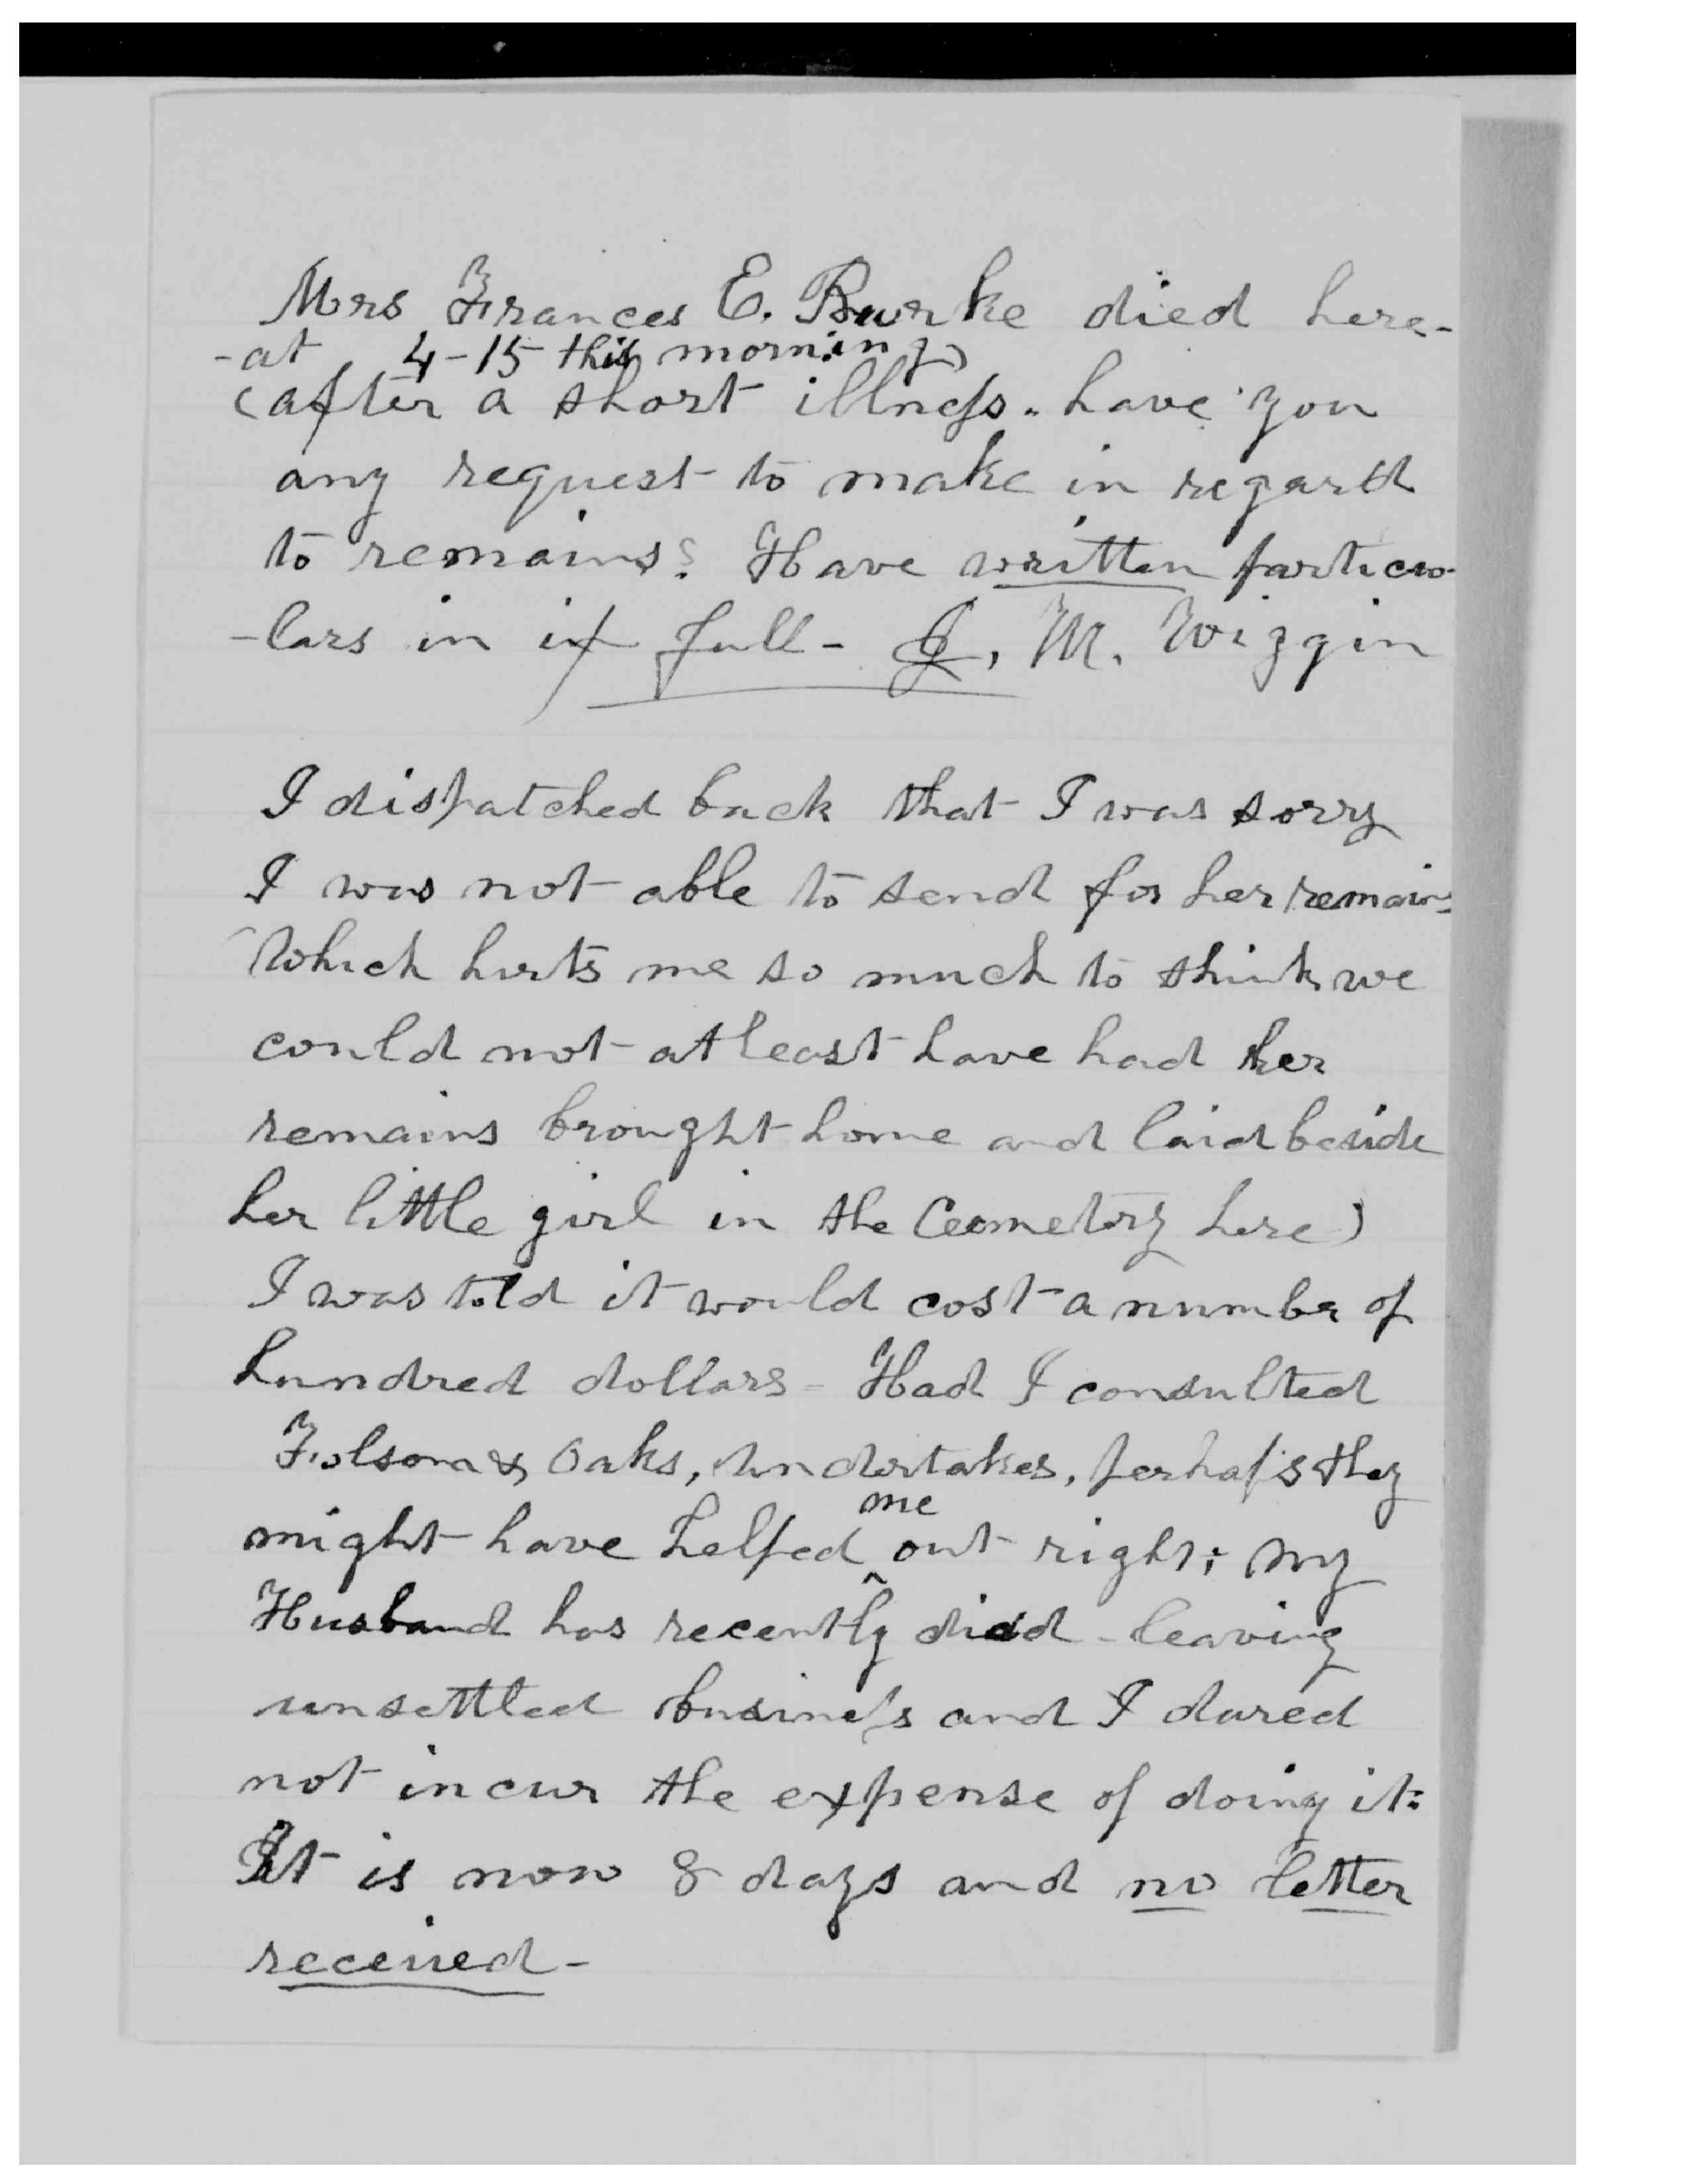 Mrs Frances E. Burke died here-
-at 4-15 this morning)
(after a short illness. have you
any request to make in regard
to remains? Have written particu-
-lars in it full - J. M. Wiggin
I dispatched back that I was sorry
I was not able to send for her remains
Which hurts me so much to think we
could not at least have had her
remains brought home and laid beside
her little girl in the Cemetery here)
I was told it would cost a number of
hundred dollars - Had I consulted
Folsom & Oaks, Undertakes, perhaps they
might have helped me out right; my
Husband has recently died - leaving
unsettled business and I dared
not incur the expense of doing it:
It is now 8 days and no letter
received -